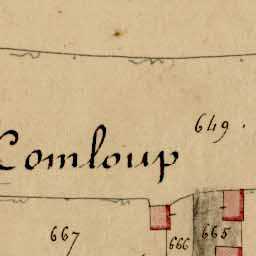 649.
Comloup
667
666
665